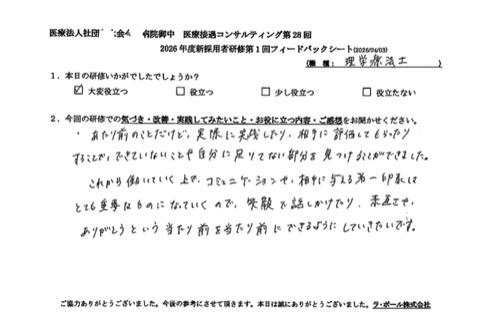 医療法人社団 会 病院御中 医療接遇コンサルティング第28回
2026年度新採用者研修第1回フィードバックシート(2026/04/03)
(職種: 理学療法士 )
1.本日の研修いかがでしたでしょうか?
☑ 大変役立つ □ 役立つ □ 少し役立つ □ 役立たない
2.今回の研修での気づき・改善・実践してみたいこと・お役に立つ内容・ご感想をお聞かせください。
・あたり前のことだけど、実際に実践したり、相手に評価してもらったり
することで、できていないことや自分に足りてない部分を見つけることができました。
これから働いていく上で、コミュニケーションや、相手に与える第一印象は
とても重要なものになっていくので、笑顔で話しかけたり、素直さや、
ありがとうという当たり前を当たり前にできるようにしていきたいです。
ご協力ありがとうございました。今後の参考にさせて頂きます。本日は誠にありがとうございました。ラ・ポール株式会社